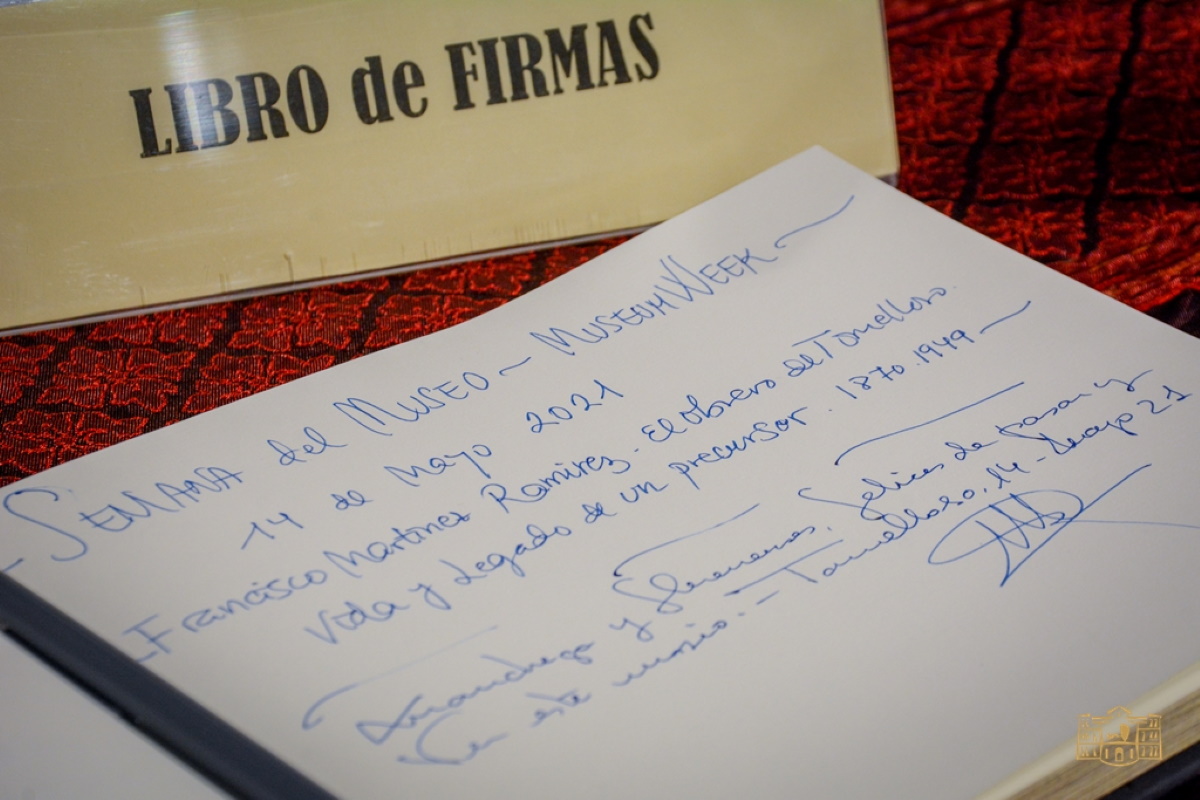 LIBRO de FIRMAS
SEMANA del MUSEO ~ MUSEUMWEEK ~
14 de Mayo 2021
Francisco Martinez Ramírez - El Obrero de Tomelloso.
Vida y Legado de un precursor. 1870.1949 ~
y felices de pasar y
en este museo. - Tomelloso, 14 - Mayo 21